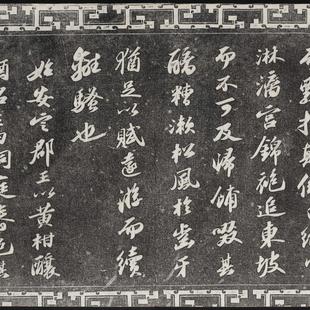 淋漓宮錦袍追東坡
而不可及歸餔歠其
醨糟漱松風於齒牙
猶足以賦遠游而續
離騷也
始安定郡王以黃柑釀
酒名之曰洞庭春色其